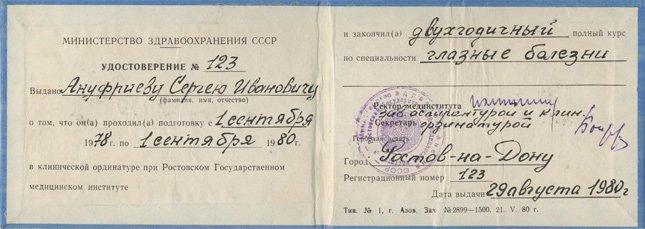 МИНИСТЕРСТВО ЗДРАВООХРАНЕНИЯ СССР
УДОСТОВЕРЕНИЕ № 123
Выдано Ануфриеву Сергею Ивановичу
(фамилия, имя, отчество)
о том, что он(а) проходил(а) подготовку с 1 сентября
1978 г. по 1 сентября 1980 г.
в клинической ординатуре при Ростовском Государственном
медицинском институте
и закончил(а) двухгодичный полный курс
по специальности глазные болезни
Ректор мединститута
зав. аспирантурой и клин.
Секретарь ординатурой
Гербовая печать
Город Ростов-на-Дону
Регистрационный номер 123
Дата выдачи 29 августа 1980 г
Тип. № 1, г. Азов. Зак №2899—1500. 21. V. 80 г.